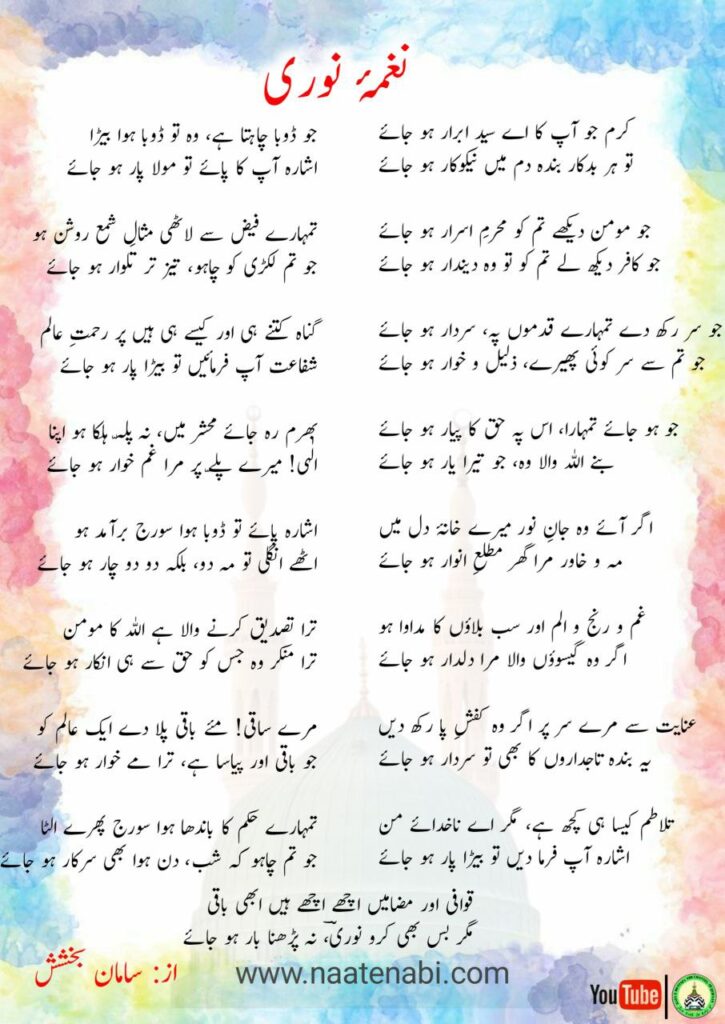 نغمۂ نوری
کرم جو آپ کا اے سید ابرار ہو جائے
تو ہر بدکار بندہ دم میں نیکوکار ہو جائے
جو مومن دیکھے تم کو محرمِ اسرار ہو جائے
جو کافر دیکھ لے تم کو تو وہ دیندار ہو جائے
جو سر رکھ دے تمہارے قدموں پہ، سردار ہو جائے
جو تم سے سر کوئی پھیرے، ذلیل و خوار ہو جائے
جو ہو جائے تمہارا، اس پہ حق کا پیار ہو جائے
بنے اللہ والا وہ، جو تیرا یار ہو جائے
اگر آئے وہ جانِ نور میرے خانۂ دل میں
مہ و خاور مرا گھر مطلعِ انوار ہو جائے
غم و رنج و الم اور سب بلاؤں کا مداوا ہو
اگر وہ گیسوؤں والا مرا دلدار ہو جائے
عنایت سے مرے سر پر اگر وہ کفشِ پا رکھ دیں
یہ بندہ تاجداروں کا بھی تو سردار ہو جائے
تلاطم کیسا ہی کچھ ہے، مگر اے ناخدائے من
اشارہ آپ فرما دیں تو بیڑا پار ہو جائے
جو ڈوبا چاہتا ہے، وہ تو ڈوبا ہوا بیڑا
اشارہ آپ کا پائے تو مولا پار ہو جائے
تمہارے فیض سے لاٹھی مثالِ شمع روشن ہو
جو تم لکڑی کو چاہو، تیز تر تلوار ہو جائے
گناہ کتنے ہی اور کیسے ہی ہیں پر رحمتِ عالم
شفاعت آپ فرمائیں تو بیڑا پار ہو جائے
بھرم رہ جائے محشر میں، نہ پلہ ہلکا ہو اپنا
الٰہی! میرے پلے پر مرا غم خوار ہو جائے
اشارہ پائے تو ڈوبا ہوا سورج برآمد ہو
اٹھے انگلی تو مہ دو، بلکہ دو دو چار ہو جائے
ترا تصدیق کرنے والا ہے اللہ کا مومن
ترا منکر وہ جس کو حق سے ہی انکار ہو جائے
مرے ساقی! مئے باقی پلا دے ایک عالم کو
جو باقی اور پیاسا ہے، ترا مے خوار ہو جائے
تمہارے حکم کا باندھا ہوا سورج پھرے الٹا
جو تم چاہو کہ شب، دن ہوا بھی سرکار ہو جائے
قوافی اور مضامیں اچھے اچھے ہیں ابھی باقی
مگر بس بھی کرو نوریؔ، نہ پڑھنا بار ہو جائے
از: سامان بخشش
www.naatenabi.com
YouTube